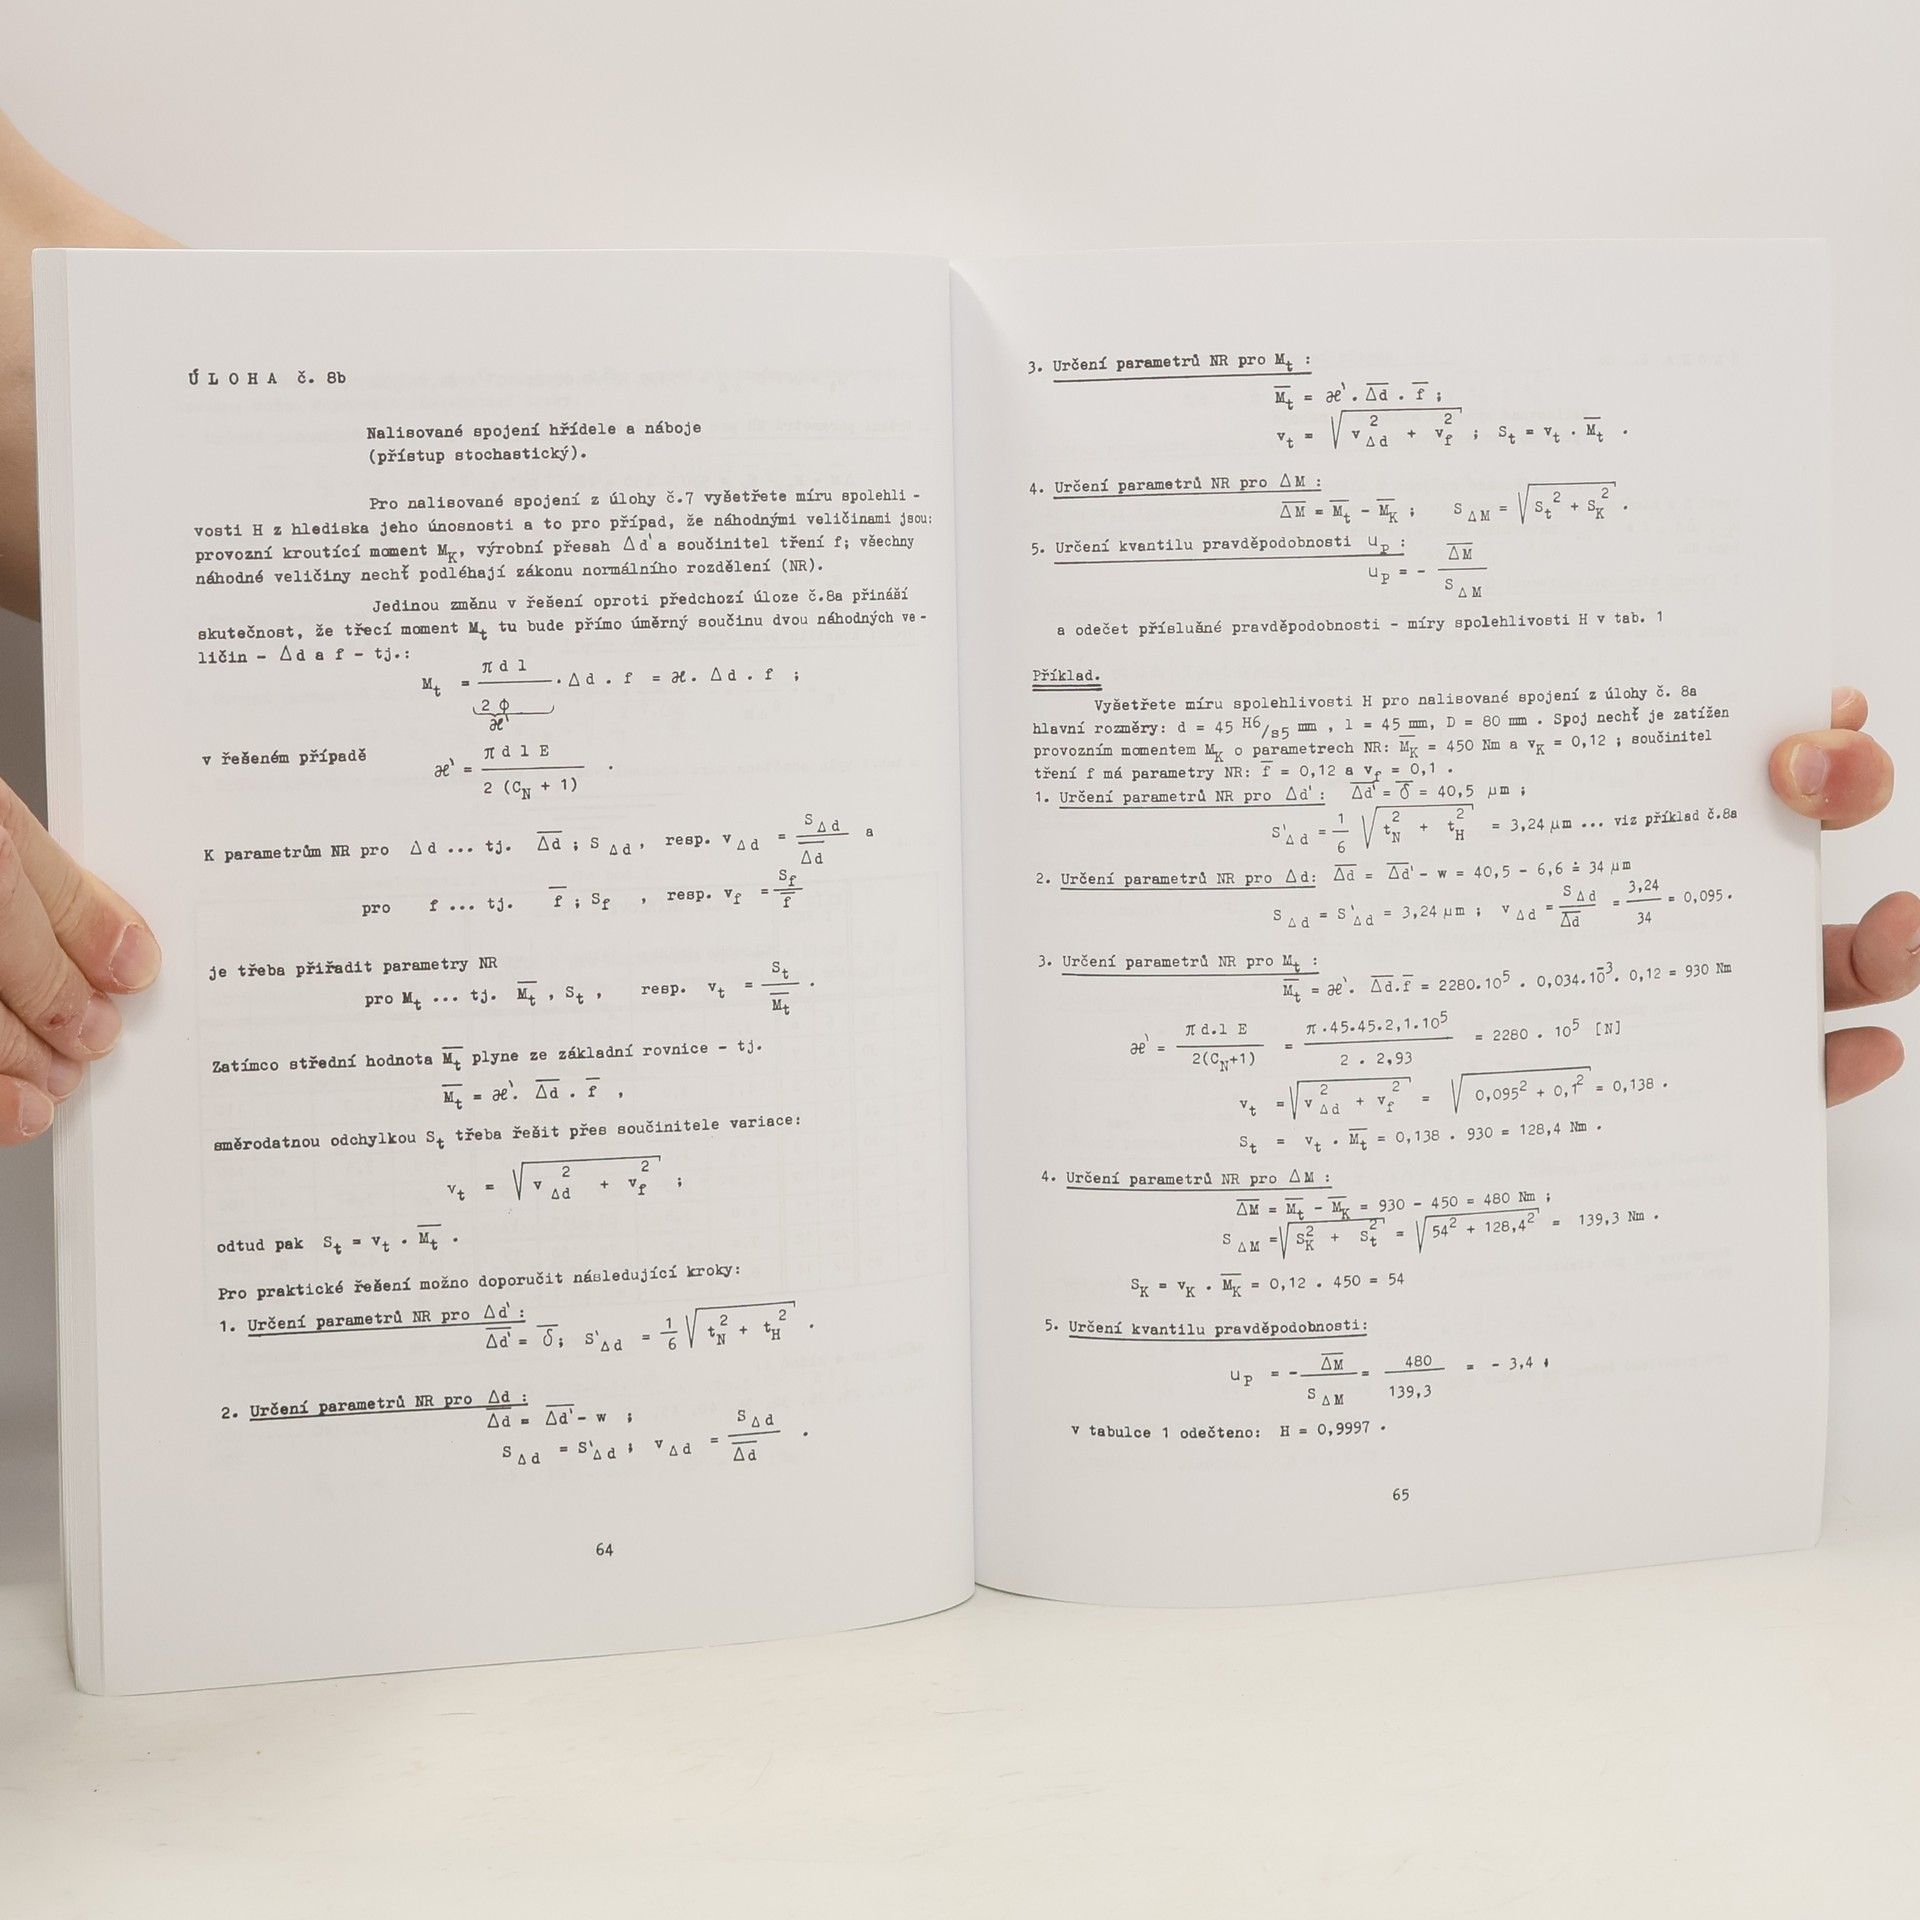 Ú L O H A č. 8b
Nalisované spojení hřídele a náboje
(přístup stochastický).
Pro nalisované spojení z úlohy č.7 vyšetřete míru spolehli -
vosti H z hlediska jeho únosnosti a to pro případ, že náhodnými veličinami jsou:
provozní kroutící moment M_K, výrobní přesah Δd' a součinitel tření f; všechny
náhodné veličiny nechť podléhají zákonu normálního rozdělení (NR).
Jedinou změnu v řešení oproti předchozí úloze č.8a přináší
skutečnost, že třecí moment M_t tu bude přímo úměrný součinu dvou náhodných ve -
ličin - Δd a f - tj.:
M_t = π d l / 2 ϕ . Δd . f = æ. Δd . f ;
æ'
v řešeném případě æ' = π d l E / 2 (C_N + 1) .
K parametrům NR pro Δd ... tj. Δd̅ ; S_Δd , resp. v_Δd = S_Δd / Δd̅ a
pro f ... tj. f̅ ; S_f , resp. v_f = S_f / f̅
je třeba přiřadit parametry NR
pro M_t ... tj. M̅_t , S_t , resp. v_t = S_t / M̅_t .
Zatímco střední hodnota M̅_t plyne ze základní rovnice - tj.
M̅_t = æ'. Δd̅ . f̅ ,
směrodatnou odchylkou S_t třeba řešit přes součinitele variace:
v_t = √(v²_Δd + v²_f) ;
odtud pak S_t = v_t . M̅_t .
Pro praktické řešení možno doporučit následující kroky:
1. Určení parametrů NR pro Δd' :
Δd̅' = δ̅; S'_Δd = 1/6 √(t²_N + t²_H) .
2. Určení parametrů NR pro Δd :
Δd̅ = Δd̅' - w ;
S_Δd = S'_Δd ; v_Δd = S_Δd / Δd̅ .
64
3. Určení parametrů NR pro M_t :
M̅_t = æ' . Δd̅ . f̅ ;
v_t = √(v²_Δd + v²_f) ; S_t = v_t . M̅_t .
4. Určení parametrů NR pro ΔM :
ΔM̅ = M̅_t - M̅_K ; S_ΔM = √(S_t² + S_K²) .
5. Určení kvantilu pravděpodobnosti u_p :
u_P = - ΔM̅ / S_ΔM
a odečet příslušné pravděpodobnosti - míry spolehlivosti H v tab. 1
Příklad.
Vyšetřete míru spolehlivosti H pro nalisované spojení z úlohy č. 8a
hlavní rozměry: d = 45 H6/s5 mm , l = 45 mm, D = 80 mm . Spoj nechť je zatížen
provozním momentem M_K o parametrech NR: M̅_K = 450 Nm a v_K = 0,12 ; součinitel
tření f má parametry NR: f̅ = 0,12 a v_f = 0,1 .
1. Určení parametrů NR pro Δd' : Δd̅' = δ̅ = 40,5 μm ;
S'_Δd = 1/6 √(t²_N + t²_H) = 3,24 μm ... viz příklad č.8a
2. Určení parametrů NR pro Δd: Δd̅ = Δd̅' - w = 40,5 - 6,6 ≐ 34 μm
S_Δd = S'_Δd = 3,24 μm ; v_Δd = S_Δd / Δd̅ = 3,24 / 34 = 0,095 .
3. Určení parametrů NR pro M_t :
M̅_t = æ'. Δd̅.f̅ = 2280.10⁵ . 0,034.10⁻³. 0,12 = 930 Nm
æ' = π d.l E / 2(C_N+1) = π .45.45.2,1.10⁵ / 2 . 2,93 = 2280 . 10⁵ [N]
v_t = √(v²_Δd + v²_f) = √(0,095² + 0,1²) = 0,138 .
S_t = v_t . M̅_t = 0,138 . 930 = 128,4 Nm .
4. Určení parametrů NR pro ΔM :
ΔM̅ = M̅_t - M̅_K = 930 - 450 = 480 Nm ;
S_ΔM = √(S²_K + S²_t) = √(54² + 128,4²) = 139,3 Nm .
S_K = v_K . M̅_K = 0,12 . 450 = 54
5. Určení kvantilu pravděpodobnosti:
u_P = - ΔM̅ / S_ΔM = 480 / 139,3 = - 3,4 ;
v tabulce 1 odečteno: H = 0,9997 .
65